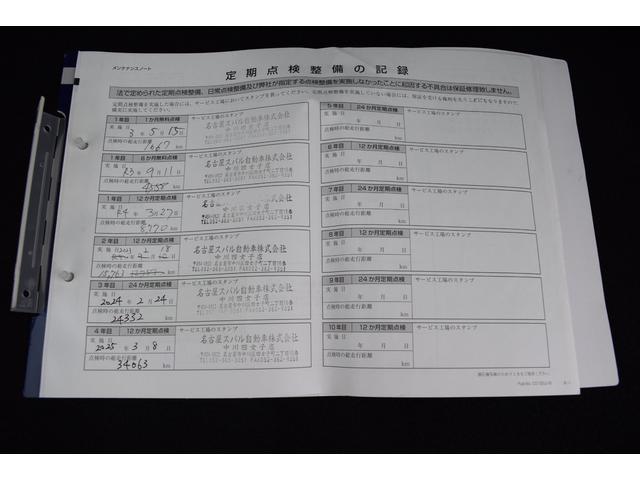 メンテナンスノート
定期点検整備の記録
法で定められた定期点検整備、日常点検整備及び弊社が指定する点検整備を実施しなかったことに起因する不具合は保証修理致しません。
1年目 1か月無料点検 サービス工場のスタンプ
実施日 3年5月15日
名古屋スバル自動車株式会社
中川四女子店
点検時の総走行距離
1,667 km
1年目 6か月無料点検 サービス工場のスタンプ
実施日 R3年9月11日
名古屋スバル自動車株式会社
中川四女子店
点検時の総走行距離
4555 km
1年目 12か月定期点検 サービス工場のスタンプ
実施日 R4年3月27日
点検時の総走行距離
8,770 km
2年目 12か月定期点検 サービス工場のスタンプ
実施日 2023 2 18
名古屋スバル自動車株式会社
中川四女子店
点検時の総走行距離
15,763 km
3年目 24か月定期点検 サービス工場のスタンプ
実施日 2024年2月24日
名古屋スバル自動車株式会社
中川四女子店
点検時の総走行距離
24332 km
4年目 12か月定期点検 サービス工場のスタンプ
実施日 2025年3月8日
名古屋スバル自動車株式会社
中川四女子店
点検時の総走行距離
34063 km
5年目 24か月定期点検 サービス工場のスタンプ
実施日 年 月 日
点検時の総走行距離
km
6年目 12か月定期点検 サービス工場のスタンプ
実施日 年 月 日
点検時の総走行距離
km
7年目 24か月定期点検 サービス工場のスタンプ
実施日 年 月 日
点検時の総走行距離
km
8年目 12か月定期点検 サービス工場のスタンプ
実施日 年 月 日
点検時の総走行距離
km
9年目 24か月定期点検 サービス工場のスタンプ
実施日 年 月 日
点検時の総走行距離
km
10年目 12か月定期点検 サービス工場のスタンプ
実施日 年 月 日
点検時の総走行距離
km